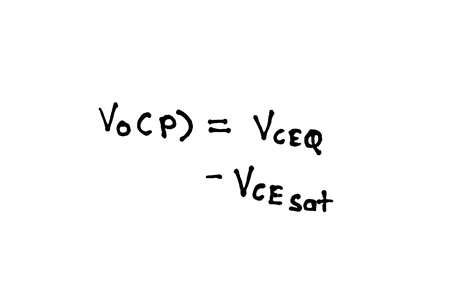 Vo(P) = VCEQ
- VCE sat